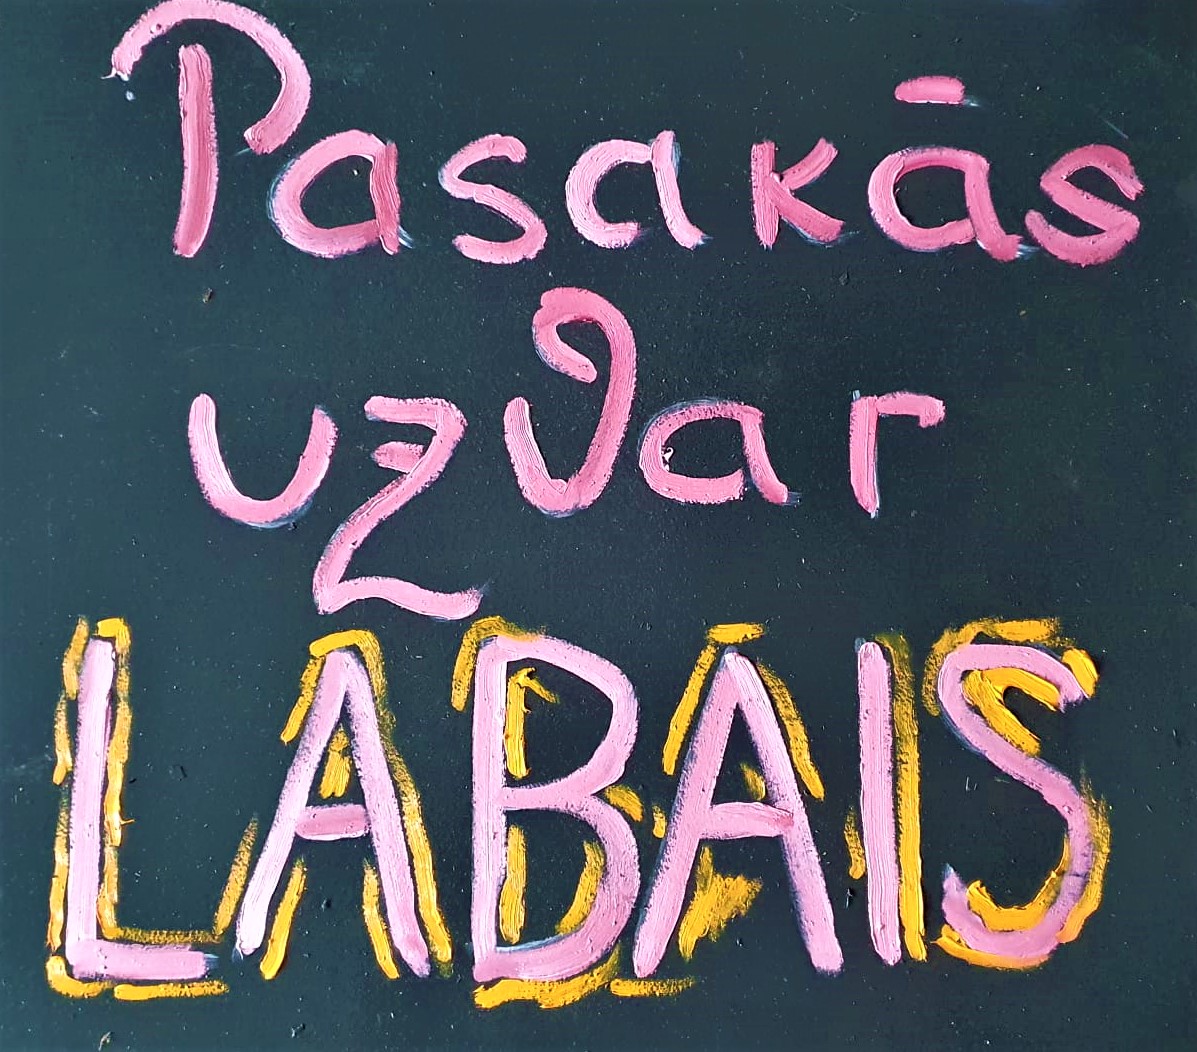 Pasakās
uzvar
LABAIS